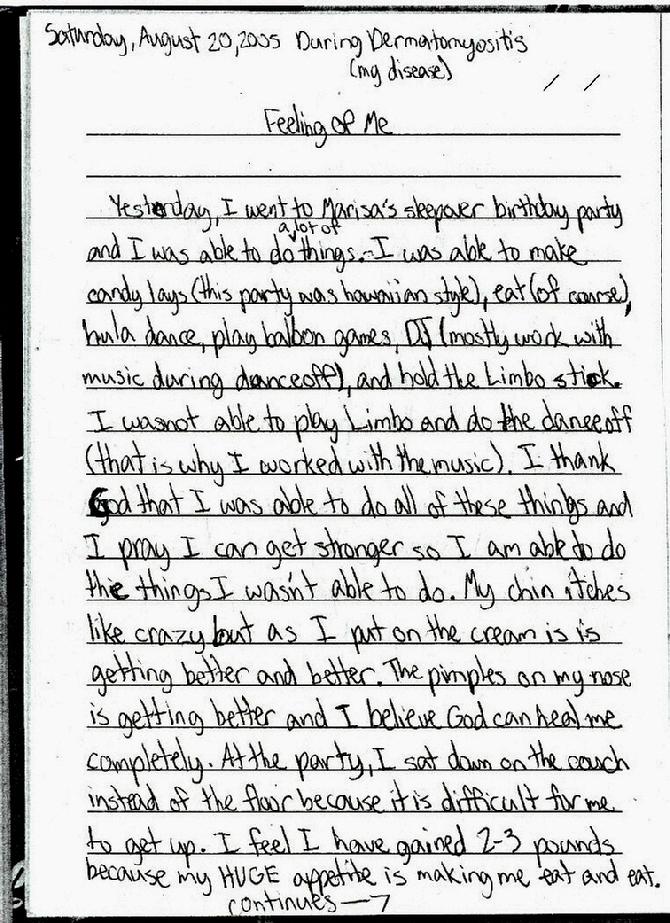 Saturday, August 20, 2005 During Dermatomyositis
(my disease)
Feeling of Me
Yesterday, I went to Marisa's sleepover birthday party
a lot of
and I was able to do things. I was able to make
candy lays (this party was hawaiian style), eat (of course),
hula dance, play balloon games, DJ (mostly work with
music during danceoff), and hold the Limbo stick.
I was not able to play Limbo and do the danceoff
(that is why I worked with the music). I thank
God that I was able to do all of these things and
I pray I can get stronger so I am able to do
the things I wasn't able to do. My chin itches
like crazy but as I put on the cream is is
getting better and better. The pimples on my nose
is getting better and I believe God can heal me
completely. At the party, I sat down on the couch
instead of the floor because it is difficult for me
to get up. I feel I have gained 2-3 pounds
because my HUGE appetite is making me eat and eat.
continues →